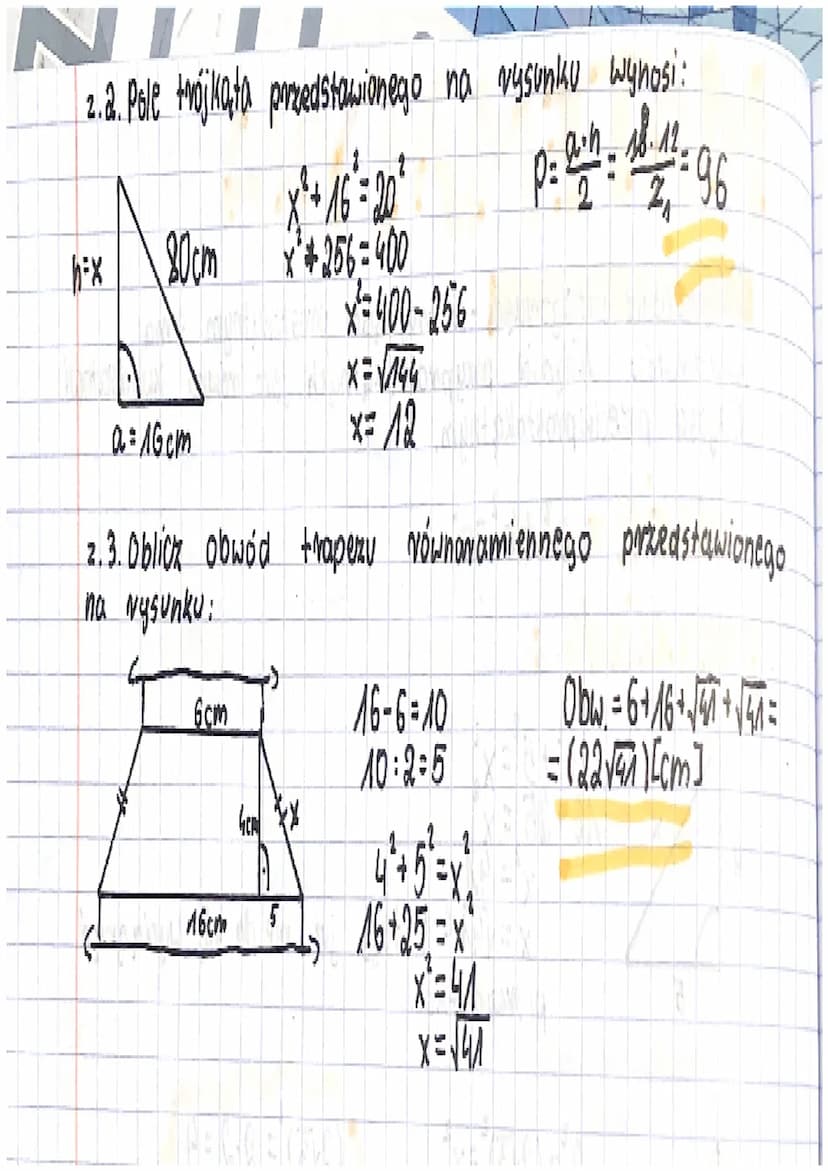 z.2. Pole trójkąta przedstawionego na rysunku wynosi:
h=x
80cm
a=16cm
x²+16²=20²
x²+256=400
x²=400-256
x=√144
x=12
P=a·h/2=18·12/2₁=96
z.3. Oblicz obwód trapezu równoramiennego przedstawionego
na rysunku:
6cm
4cm
x
16cm
5
16-6=10
10:2=5
4²+5²=x²
16+25=x²
x²=41
x=√41
Obw.=6+16+√41+√41=
=(22√41)[cm]